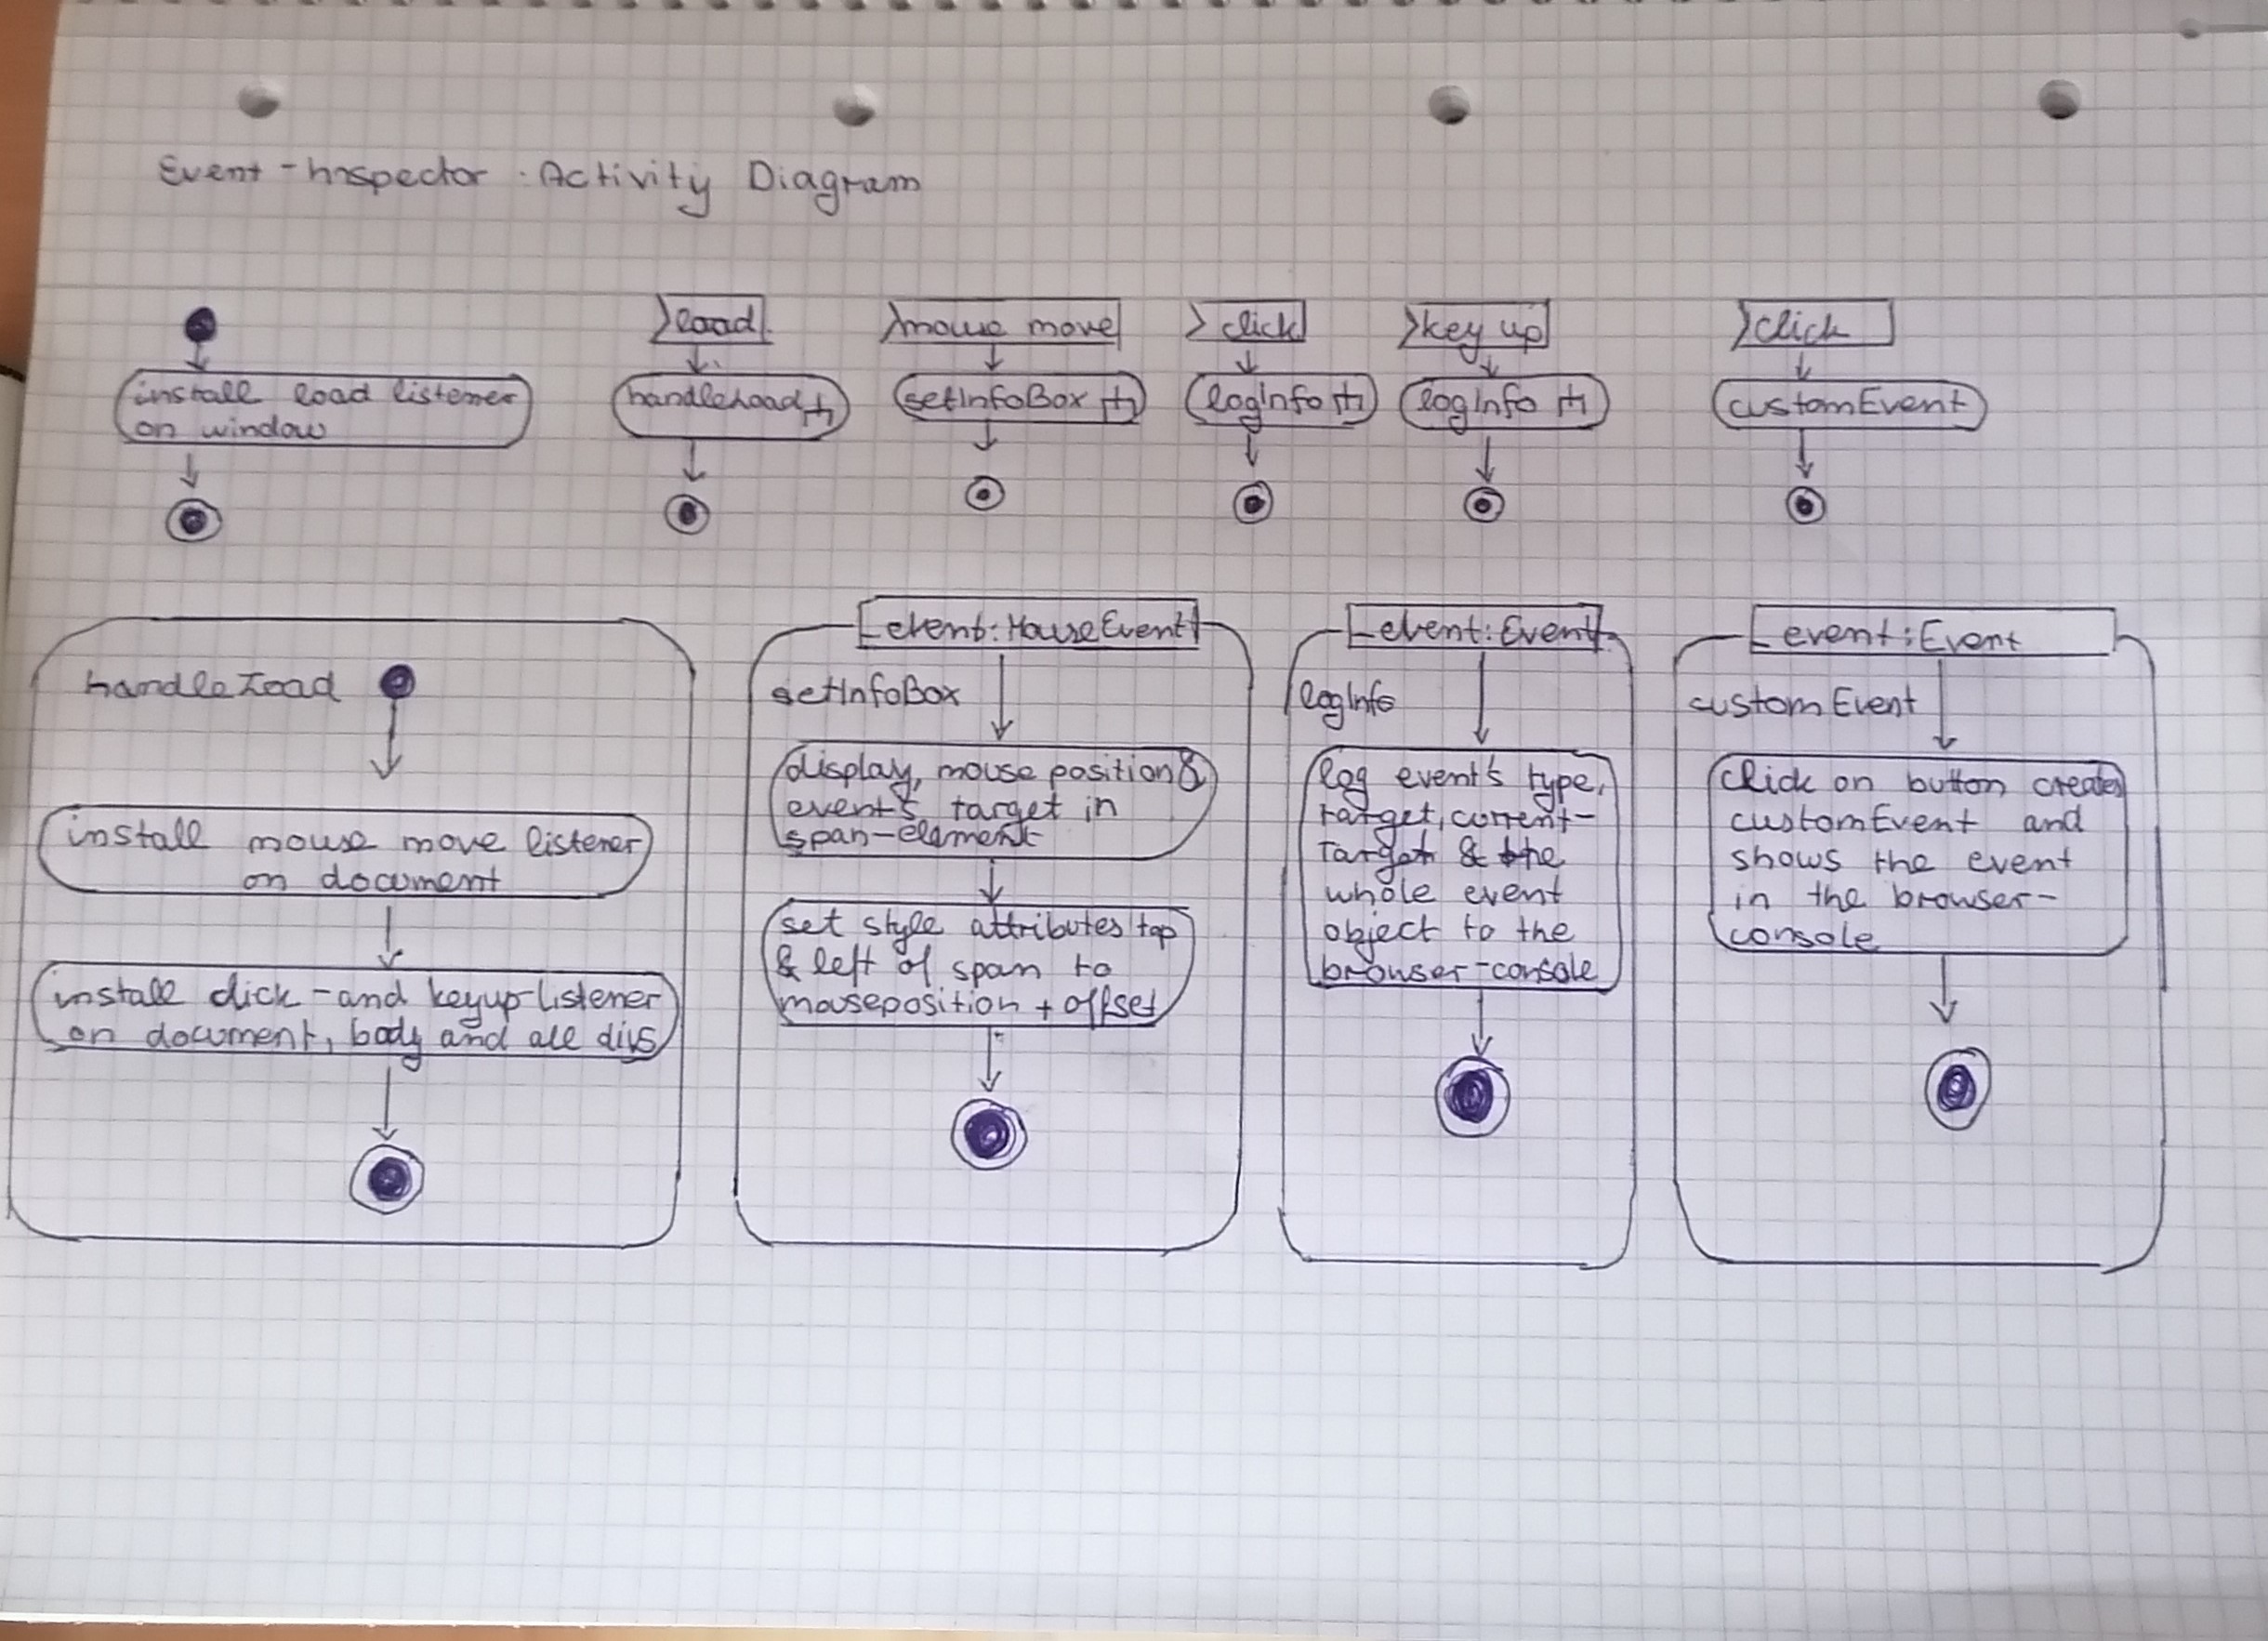 Event-Inspector: Activity Diagram
load
mouse move
click
key up
click
install load listener
on window
handleLoad
setInfoBox
logInfo
logInfo
customEvent
handleLoad
install mouse move listener
on document
install click-and keyup-listener
on document, body and all divs
_event: MouseEvent
setInfoBox
display, mouse position &
event's target in
span-element
set style attributes top
& left of span to
mouseposition + offset
_event: Event
logInfo
log event's type,
target, current-
Target & the
whole event
object to the
browser-console
_event: Event
customEvent
Click on button creates
customEvent and
shows the event
in the browser-
console